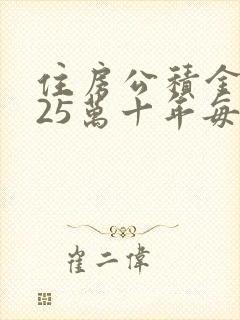 住房公積金
25萬十年每
崔二偉